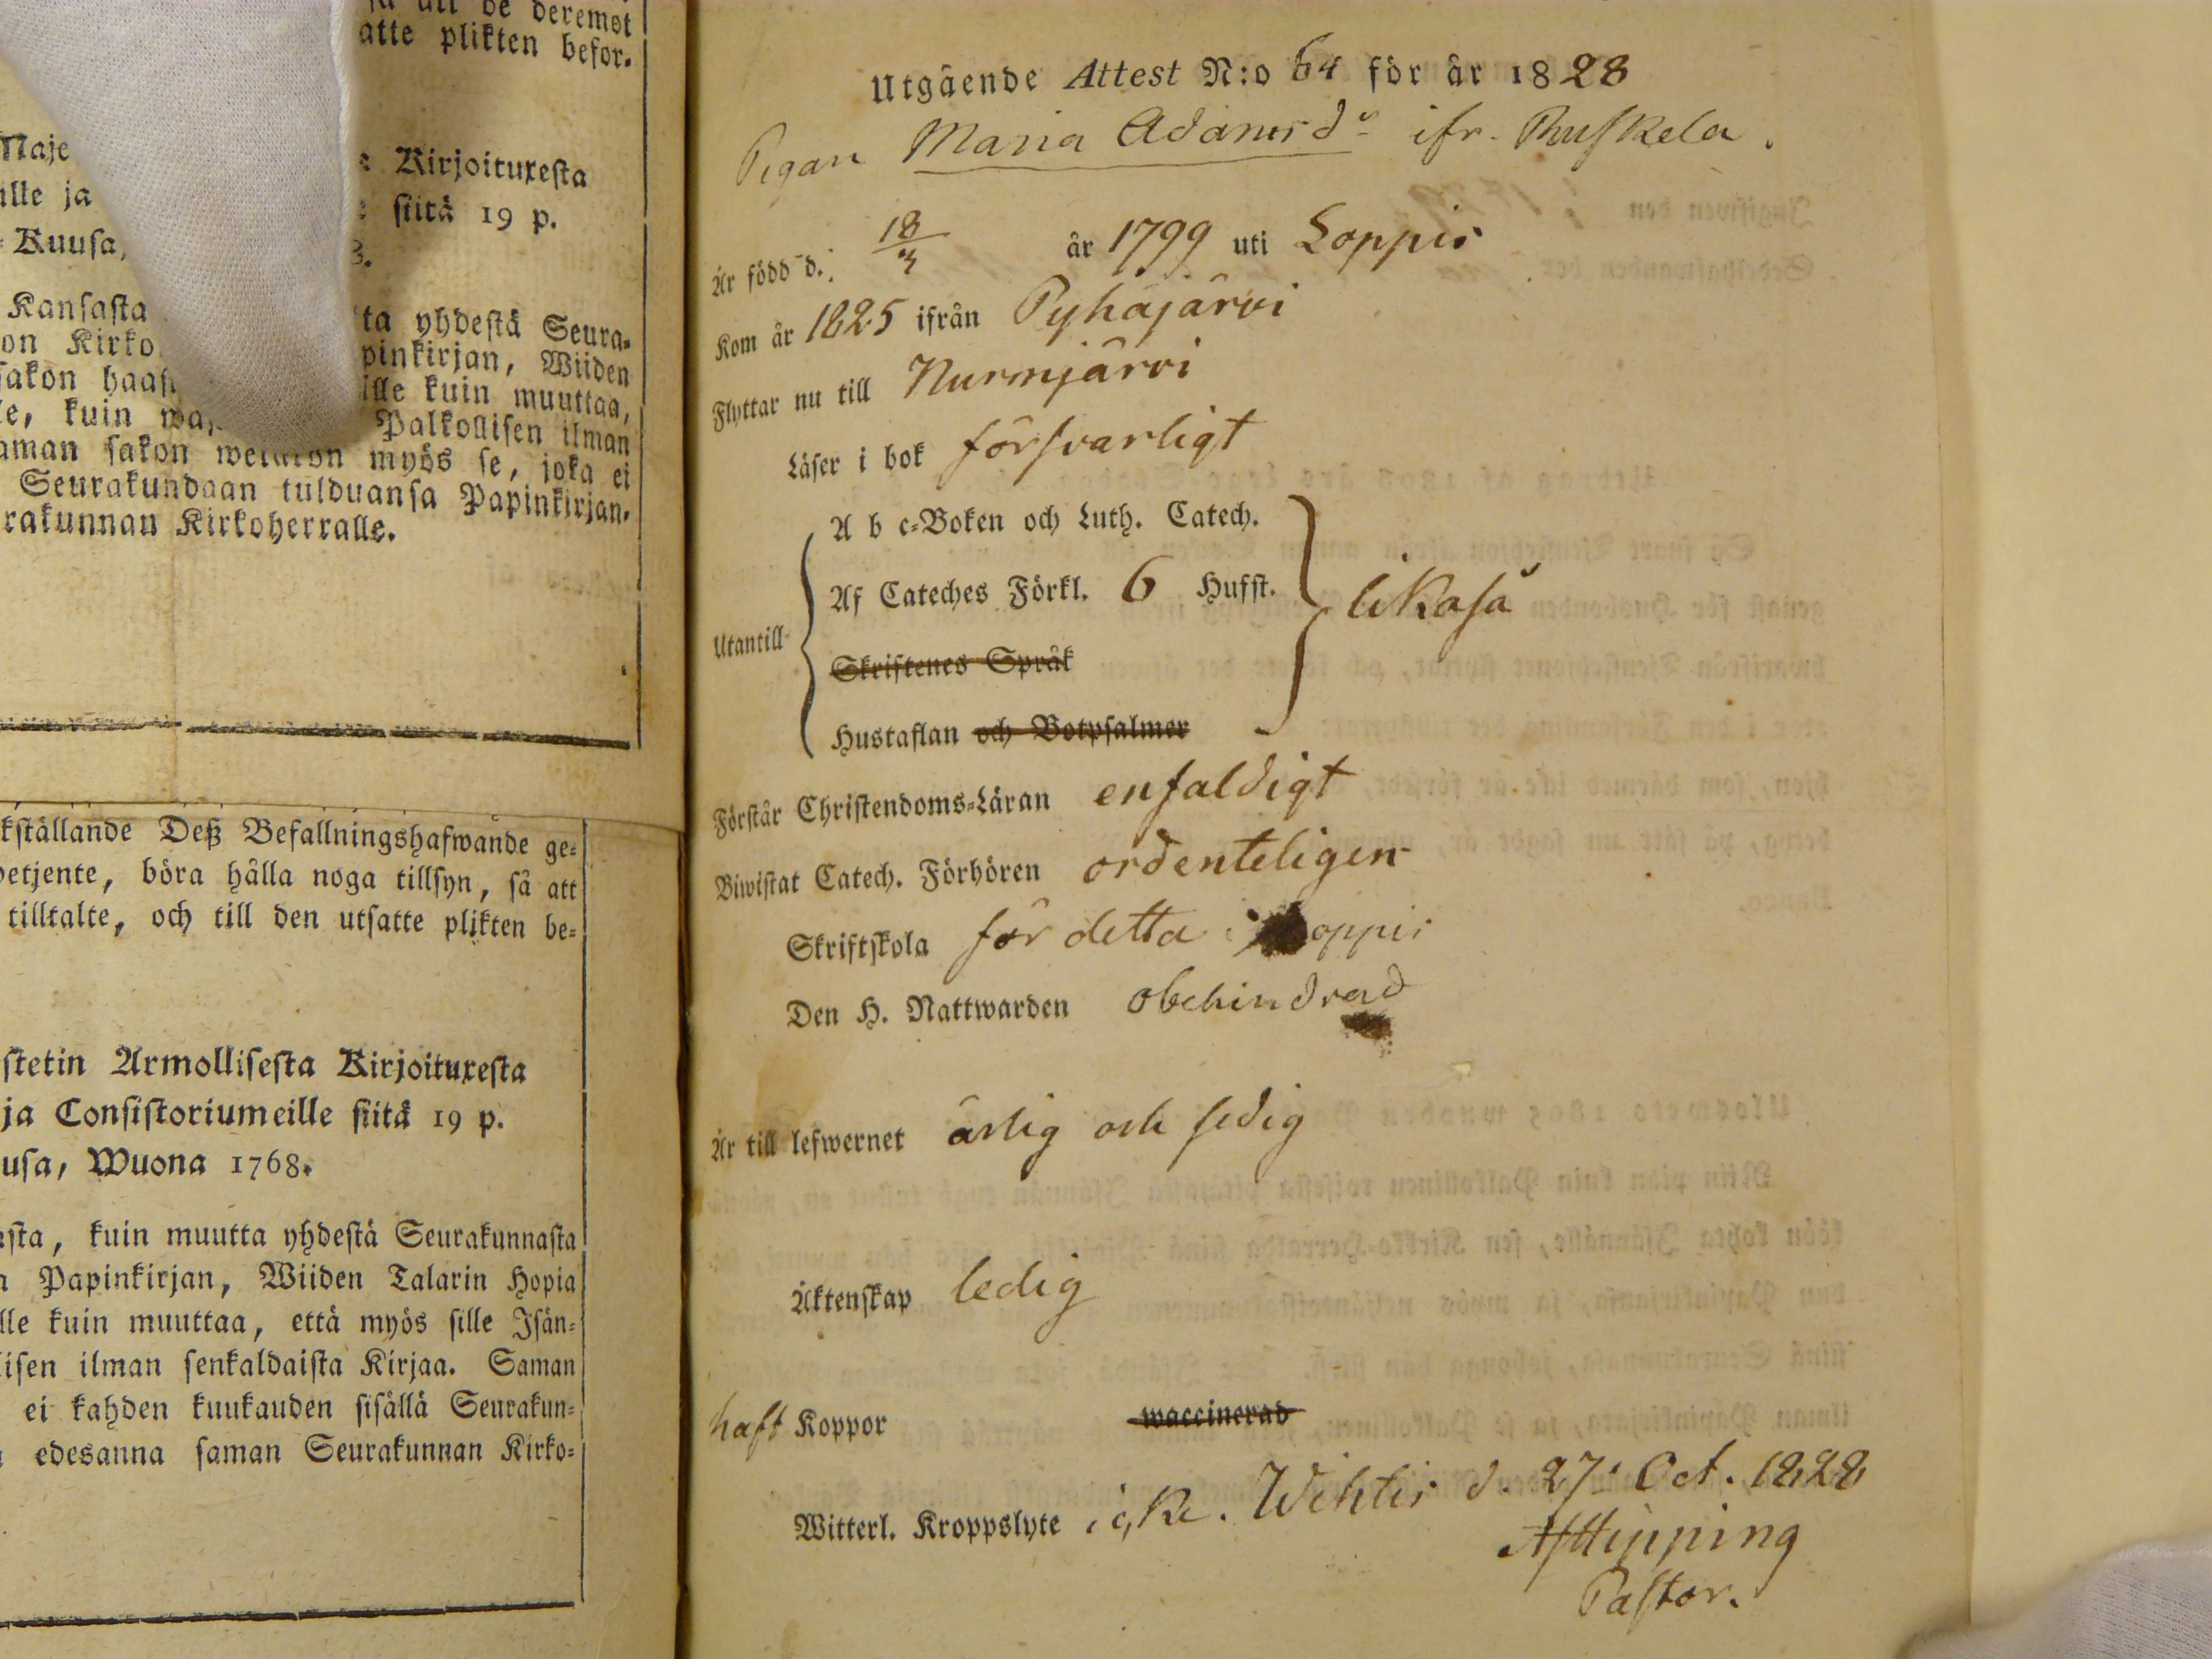 så att de deremot
atte plikten befor.
Maje
: Kirjoituxesta
ille ja
: siitä 19 p.
Kuusa,
8.
Kansasta
ta yhdestä Seura-
on Kirko
pinkirjan, Wiiden
sakon haas
ille kuin muuttaa,
le, kuin wa
Palkollisen ilman
aman sakon wetäkön myös se, joka ei
Seurakundaan tulduansa Papinkirjan,
rakunnan Kirkoherralle.
kställande Deß Befallningshafwande ge-
betjente, böra hålla noga tillsyn, så att
tilltalte, och till den utsatte plikten be-
stetin Armollisesta Kirjoituxesta
ja Consistoriumeille siitä 19 p.
usa, Wuona 1768.
asta, kuin muutta yhdestä Seurakunnasta
n Papinkirjan, Wiiden Talarin Hopia
lle kuin muuttaa, että myös sille Isän-
lisen ilman senkaldaista Kirjaa. Saman
ei kahden kuukauden sisällä Seurakun-
edesanna saman Seurakunnan Kirko-
Utgående Attest N:o 64 för år 1828
Pigan Maria Adamsdr ifr. Ruskela.
Är född d. 18/3 år 1799 uti Loppis
Kom år 1825 ifrån Pyhäjärvi
Flyttar nu till Nurmjärvi
Läser i bok försvarligt
A b c-Boken och Luth. Catech.
Utantill Af Cateches Förkl. 6 Hufst. likaså
Skriftenes Språk
Hustaflan och Botpsalmer
Förstår Christendoms-Läran enfaldigt
Biwistat Catech. Förhören ordenteligen
Skriftskola för detta i Loppis
Den H. Nattwarden obehindrad
Är till lefwernet ärlig och sedig
Äktenskap ledig
haft Koppor waccinerad
Witterl. Kroppslyte icke. Wihtis d. 27 Oct. 1828
AJHipping
Pastor.